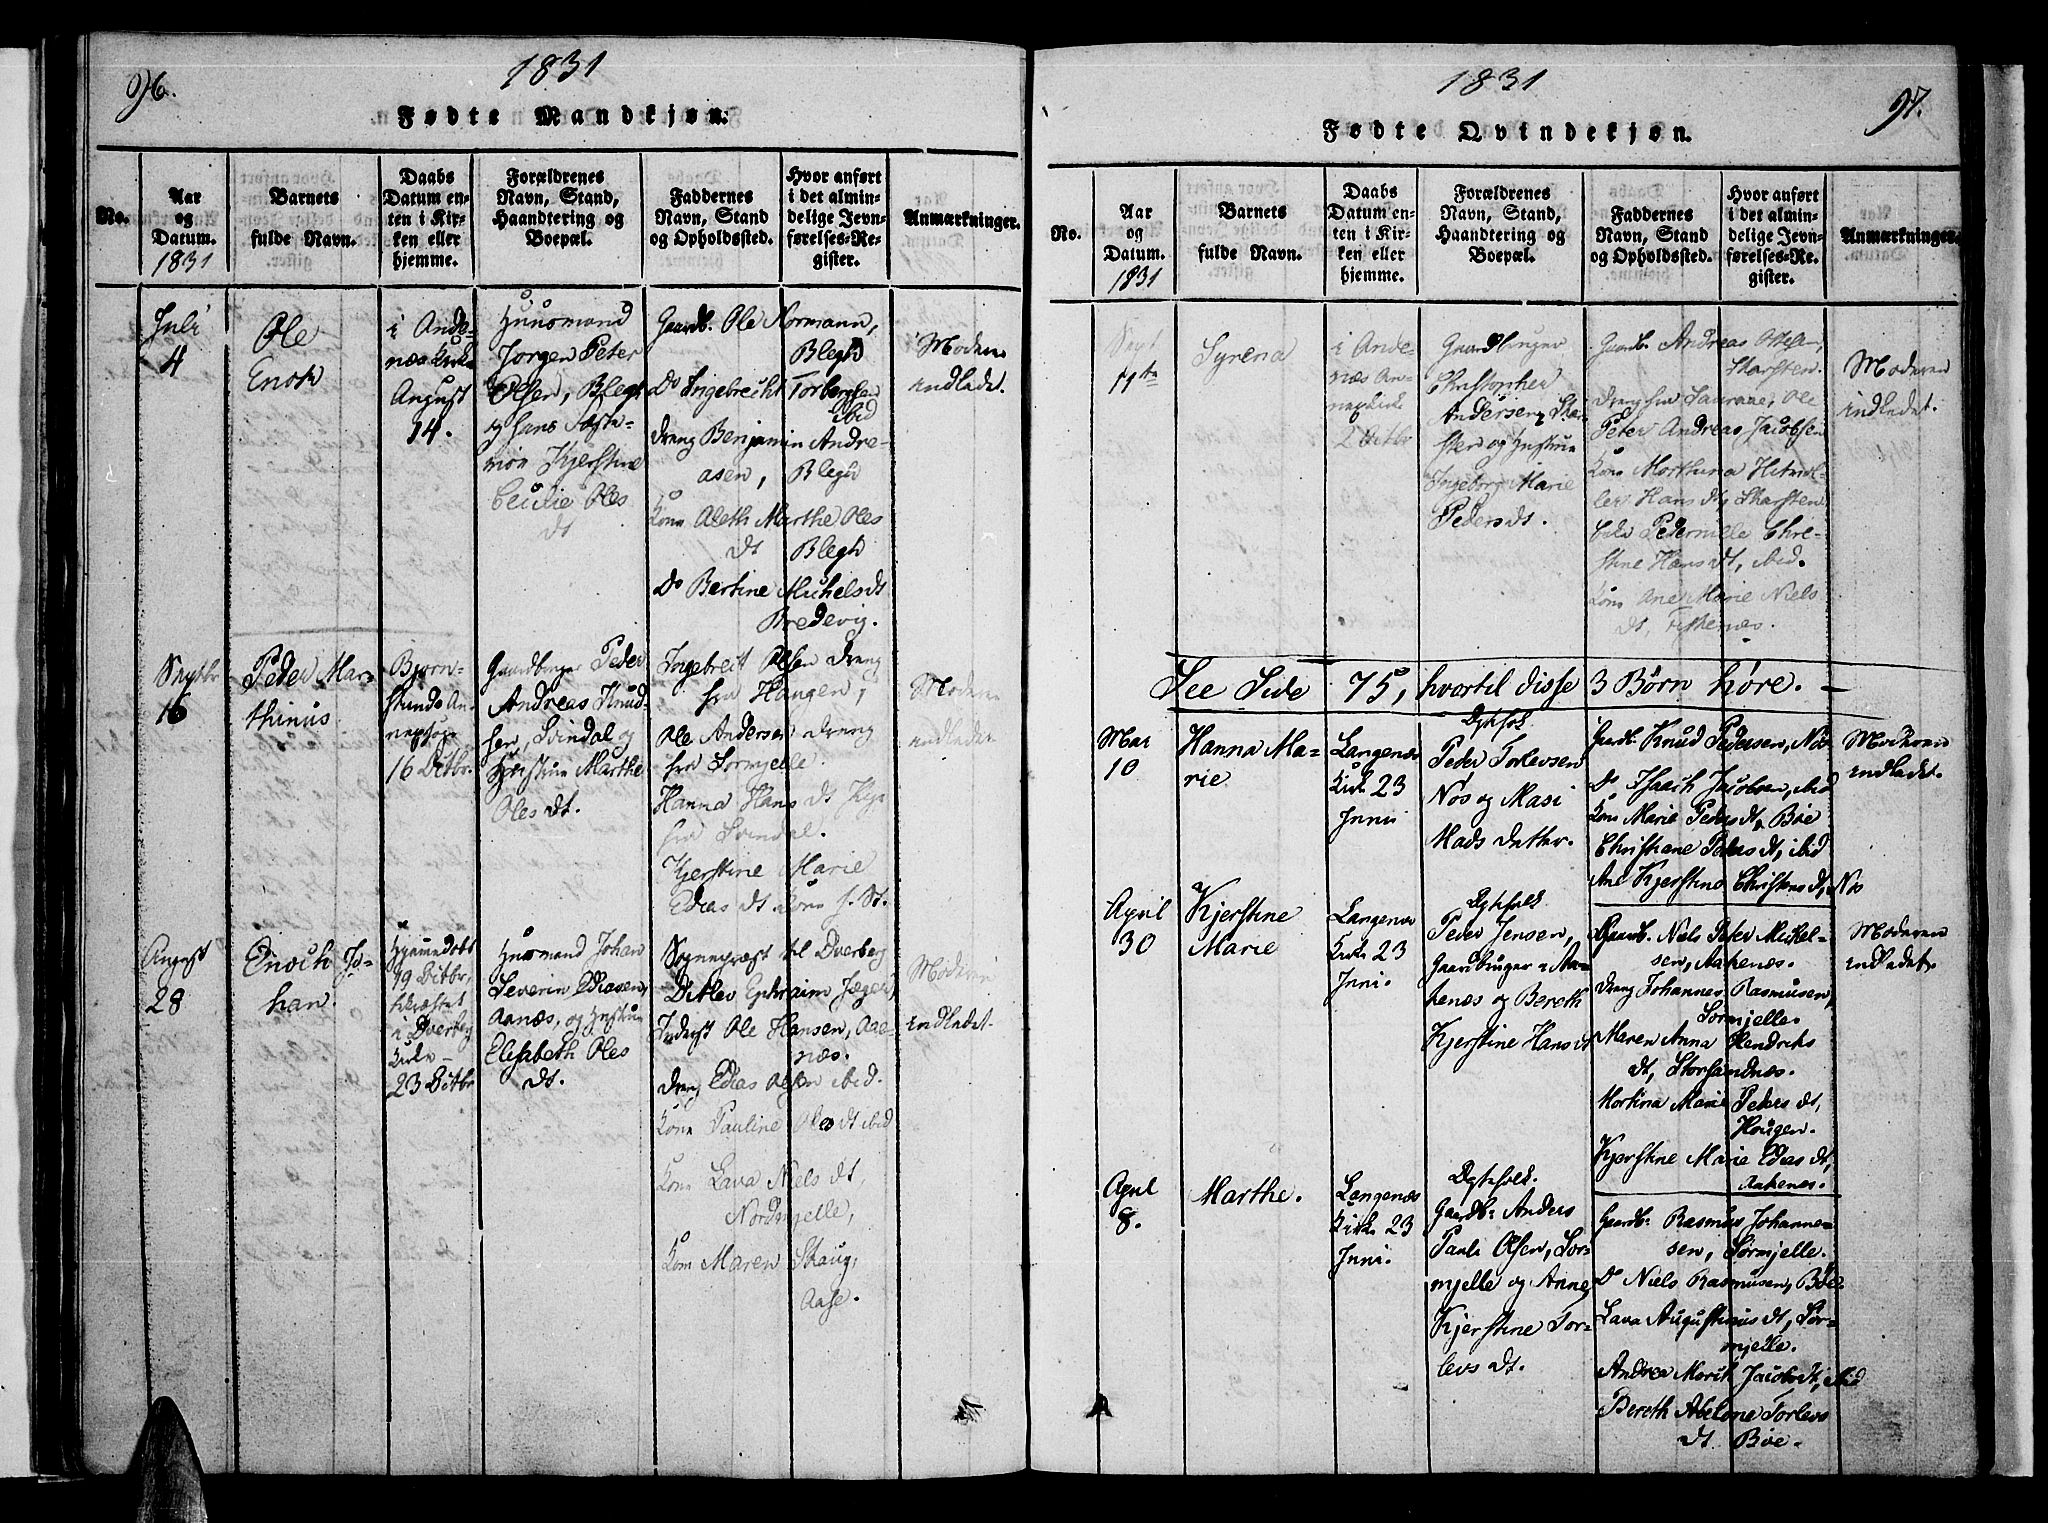 96.
1831
Fødte Mandkjøn.
No.
Aar
og
Datum.
1831
Barnets
fulde Navn.
Daabs
Datum en-
ten i Kir-
ken eller
hjemme.
Forældrenes
Navn, Stand,
Haandtering og
Boepæl.
Faddernes
Navn, Stand
og Opholdssted.
Hvor anført
i det almin-
delige Jevn-
førelses-Re-
gister.
Anmærkninger.
Juli
4
Ole
Enok
i Ande-
næs Kirke
August
14.
Huusmand
Jørgen Peter
Olsen, Blegh
og hans Fæste-
møe Kjerstine
Cecilie Oles
dt
Gaardb. Ole Normann,
Blegh
Do Ingebrecht Torbergsen
ibid
dreng Benjamin Andre-
asen, Blegh
Kone Aleth Marthe Oles
dt Blegh
Do Bertine Michelsdt
Bredevig.
Moderen
indledet.
Septbr
16
Peder Mar-
thinus.
Bjorn-
skinds An-
nexsogn
16 Octbr.
Gaardbruger Peder
Andreas Knud-
sen, Svindal og
Hustrue Marthe
Oles dt.
Ingebreit Olsen dreng
fra Haugen,
Ole Andersen dreng
fra Sørmjelle.
Hanna Hans dt Pige
fra Svindal.
Kjerstine Marie
Edias dt Kone f. St.
Moderen
indledet
August
28
Enoch Jo-
han
Hjemmedøbt
19 Octbr,
i Dverberg
Kirke –
23 Octbr
Huusmand Johan
Severin Ediasen,
Aanæs, og Hustrue
Elisabeth Oles
dt.
Sognepræst til Dverberg
Ditlev Ephraim Jæger,
Inderst Ole Hansen, Aa-
næs.
dreng Edias Olsen ibid.
Kone Pauline Oles dt ibid
Kone Lava Niels dt,
Nordmjelle,
Kone Maren Skaug,
Aase.
Moderen
indledet.
1831
97.
Fødte Qvindekjøn.
No.
Aar
og
Datum.
1831
Barnets
fulde Navn.
Daabs
Datum en-
ten i Kir-
ken eller
hjemme.
Forældrenes
Navn, Stand,
Haandtering og
Boepæl.
Faddernes
Navn, Stand
og Opholdssted.
Hvor anført
i det almin-
delige Jevn-
førelses-Re-
gister.
Anmærkninger.
Sept
11te
Syrena
i Ande-
næs An-
nexkirke
2 Octbr
Gaardbruger
Christopher
Andersen, Ska-
sten og Hustrue
Ingeborg Marie
Peders dt.
Gaardb. Andreas Ottesen,
Skarsten.
dreng fra Saurane, Ole
Peter Andreas Jacobsen
Kone Morthina
Hans dt, Skarsten
Pedernille Chri-
stine Hans dt, ibid.
Kone Ane Marie Niels
dt, Fiskenæs.
Moderen
indledet.
See Side 75, hvortil disse 3 Børn høre. –
Mar
10
Hanna Ma-
rie.
Langenæs
Kirke 23
Juni
Ægtefolk
Peder Torlevsen
Nøs og Masi
Mads datter.
Gaardb. Knud Pedersen, Nøs
Do Isaach Jacobsen, ibid
Kone Marie Peders dt, Bøe
Christiane Peders dt, ibid
Ane Kjerstine Christens dt, Nøs
Moderen
indledet.
April
30
Kjerstine
Marie
Langenæs
Kirke 23
Juni.
Ægtefolk
Peder Jensen,
Gaardbruger i Aa-
kenæs og Bereth
Kjerstine Hans dt
Gaardb. Niels Peter Mickel-
sen, Aakenæs.
dreng Johannes Rasmusen,
Sørmjelle.
Maren Anna Hendriks
dt, Storsandnæs.
Mortina Marie Peders dt,
Hougen.
Kjerstine Marie Edias dt,
Aakenæs.
Moderen
indledet.
April
8.
Marthe.
Langenæs
Kirke 23
Juni.
Ægtefolk.
Gaardbr Anders
Pauli Olsen, Sør-
mjelle og Anne
Kjerstine Tor-
levs dt.
Gaardb: Rasmus Johanne-
sen, Sørmjelle.
Do Niels Rasmusen, Bøe.
Lava Augustinus dt, Sør-
mjelle.
Andrea Marit Jacobs dt, ibid
Bereth Abelone Torlevs
dt. Bøe.